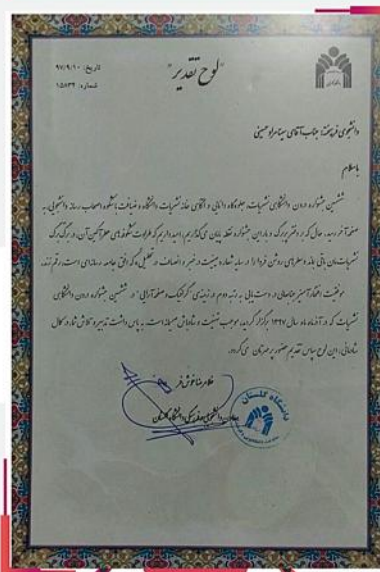 "لوح تقدیر"
تاریخ: ۹۷/۹/۱۰
شماره: ۱۵۸۳۹
دانشجوی فرهیخته جناب آقای سینا مراد حسینی
باسلام
ششمین جشنواره درون دانشگاهی نشریات، جلوه‌گاه دانایی و آگاهی خانه نشریات دانشگاه و ضیافت باشکوه اصحاب رسانه دانشجویی، به
صفحه آخر رسید. حال که بر دفتر بزرگ و بار این جشنواره نقطه پایان می‌گذاریم، امید داریم که طراوت شکوفه‌های عطرآگین آن، در برگ برگ
نشریات‌مان باقی بماند و سطرهای روشن فردا را در سایه شماره بیست در خبر و انصاف در تحلیل که افق جامعه رسانه‌ای است، رقم زند.
موفقیت افتخارآمیز جنابعالی در دست‌یابی به رتبه دوم در زمینه‌ی "گرافیک و صفحه آرایی" در ششمین جشنواره درون دانشگاهی
نشریات که در آذر ماه سال ۱۳۹۷ برگزار گردید، موجب تهنیت و شادباش صمیمانه است. به پاس داشت تدبیر و تلاش شما در کمال
شادمانی، این لوح سپاس تقدیم حضور پرمهرتان می‌گردد.
غلامرضا خوش‌فر
معاون دانشجویی و فرهنگی دانشگاه گلستان
دانشگاه گلستان